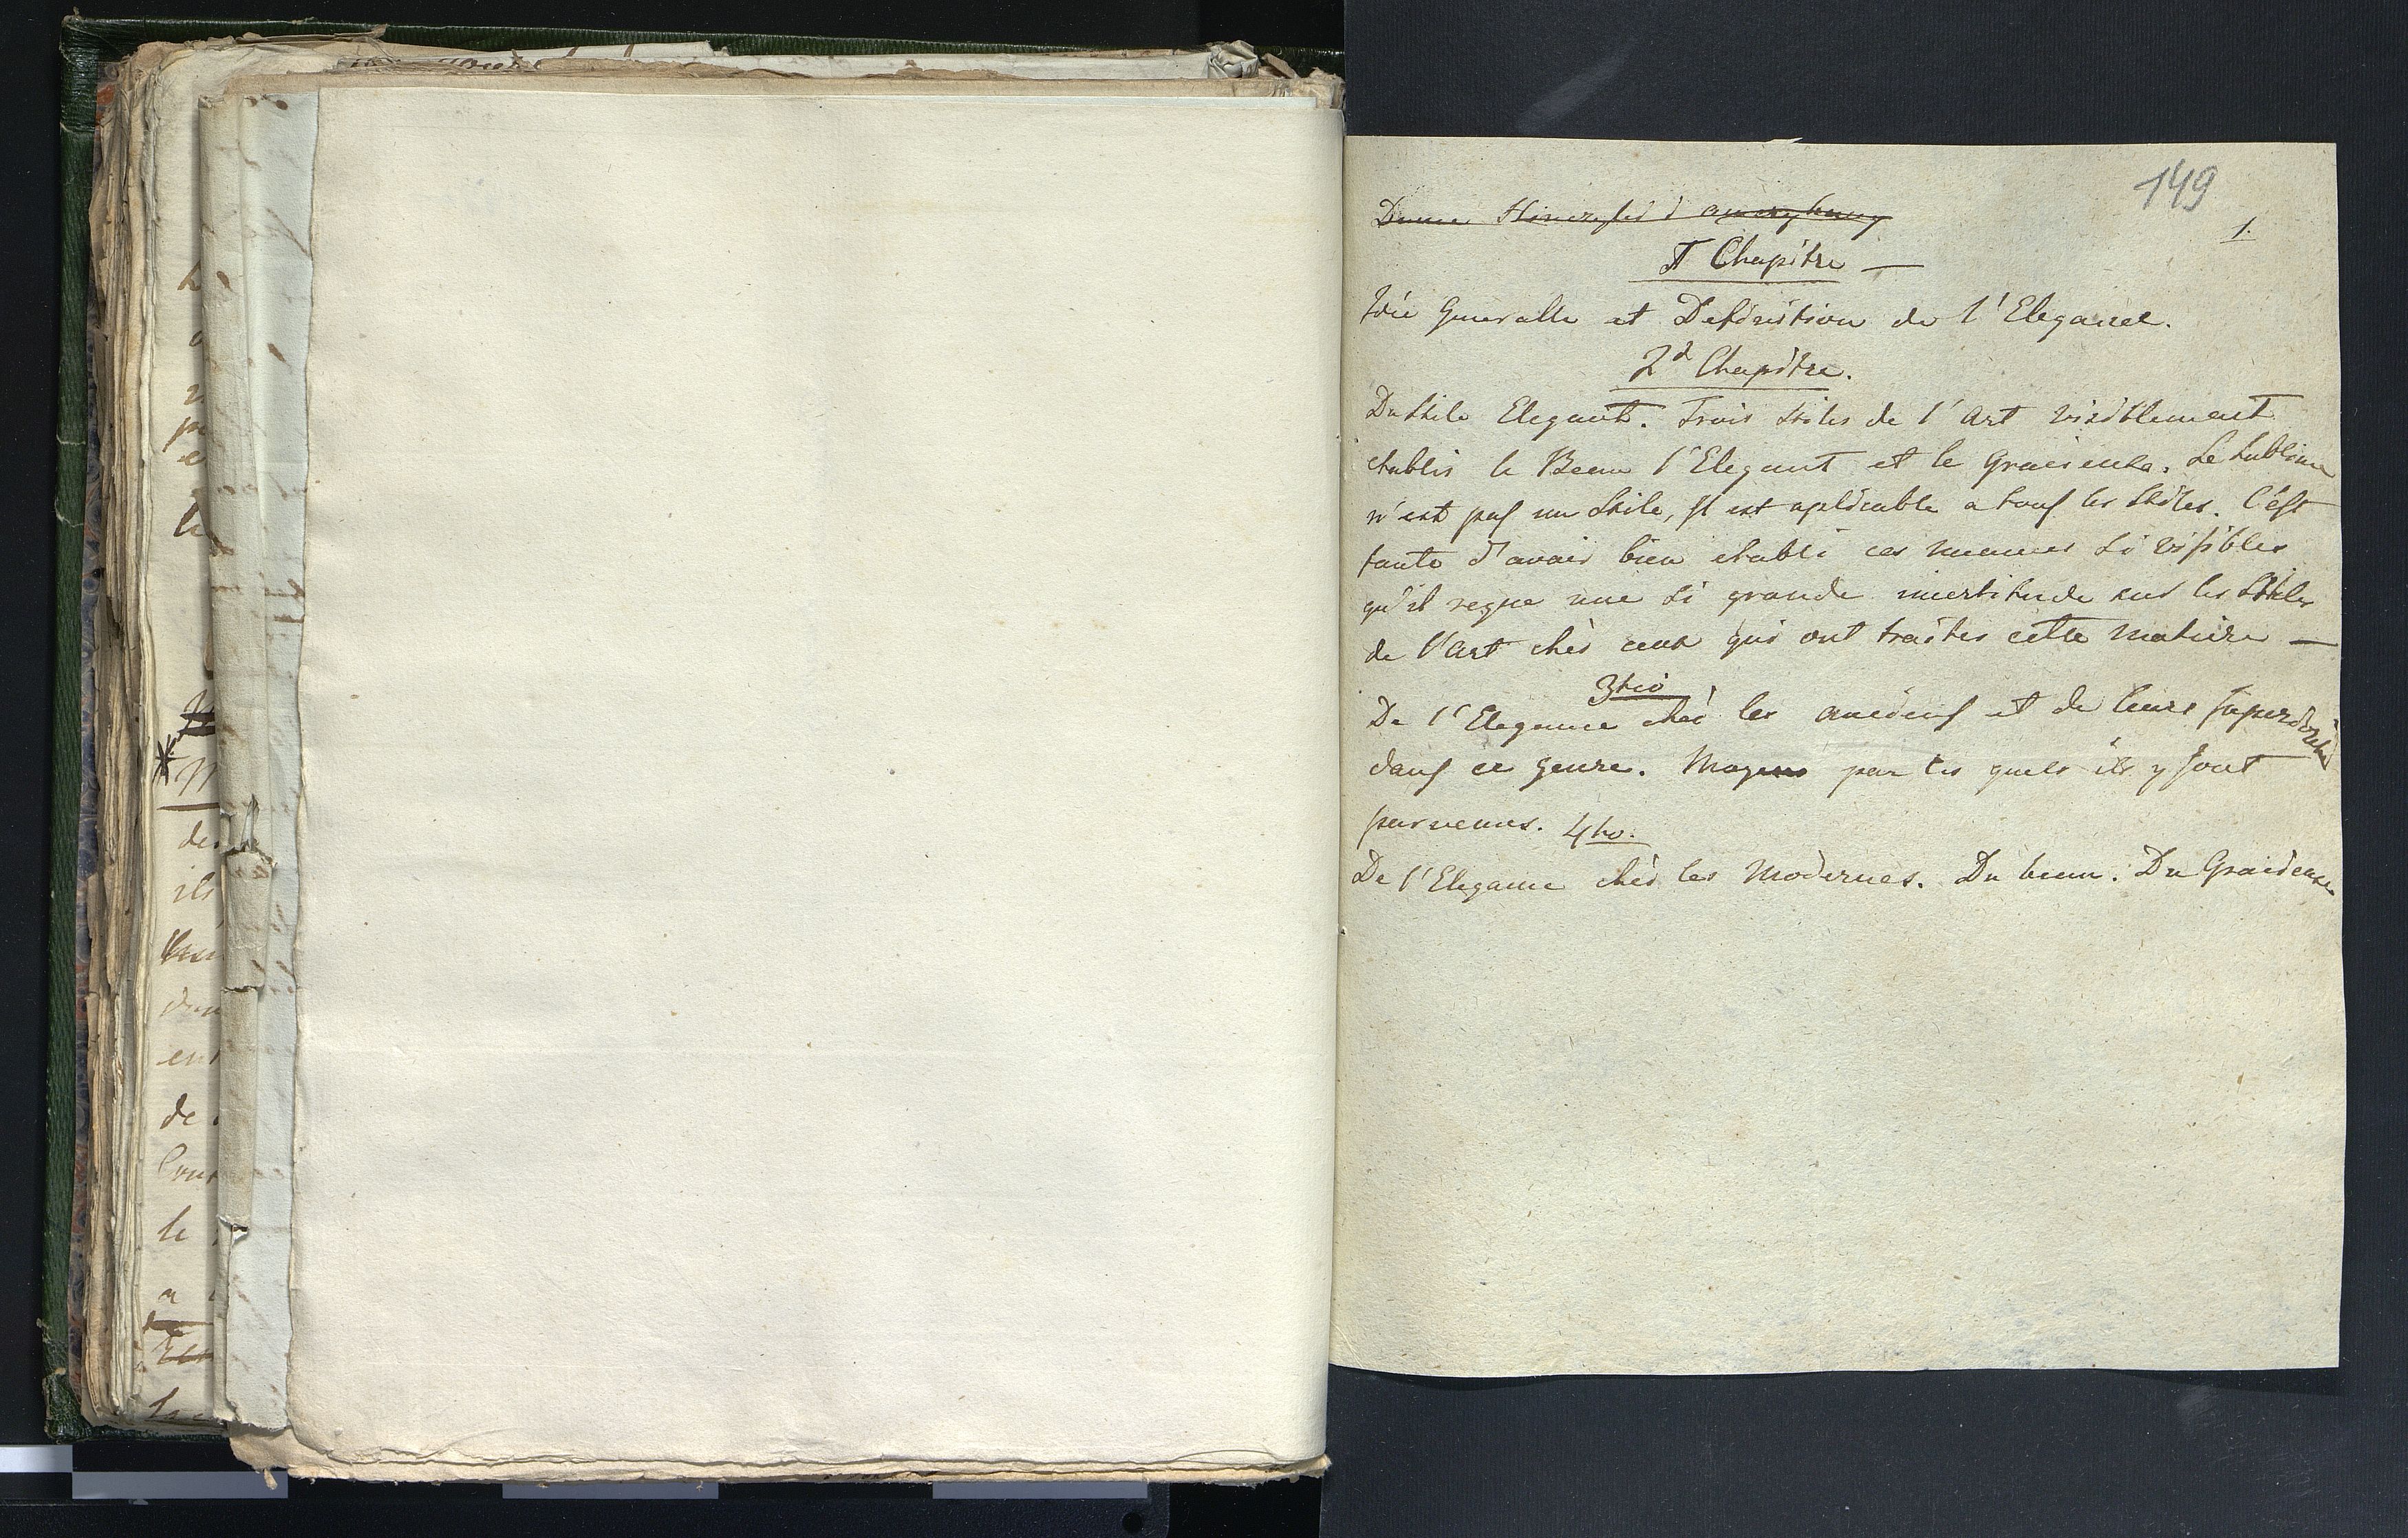 149
1.
I Chapitre —
Idée Generalle et Definition de l'Elegance.
2d Chapitre.
Du Stile Elegant. Trois Stiles de l'Art visiblement
etablis le Beau l'Elegant et le Gracieux. Le Sublime
n'est pas un Stile, Il est aplicable a tous les Stiles. C'est
faute d'avoir bien etabli ces nuances si visibles
qu'il regne une si grande incertitude sur les Stiles
de l'Art chès ceux qui ont traites cette matiere —
3tio
De l'Elegance chès les anciens et de leurs superiorité
dans ce genre. Moyens par les quels ils y sont
parvenus. 4to.
De l'Elegance chès les Modernes. Du beau. Du Gracieux.